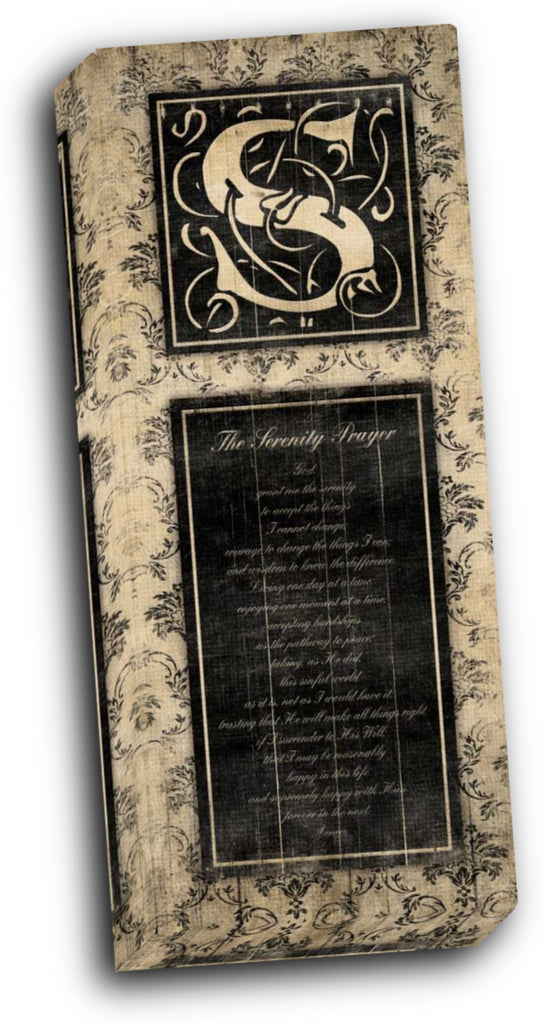 S
The Serenity Prayer
God
grant me the serenity
to accept the things
I cannot change;
courage to change the things I can;
and wisdom to know the difference.
Living one day at a time;
enjoying one moment at a time;
accepting hardships
as the pathway to peace;
taking, as He did,
this sinful world
as it is, not as I would have it
trusting that He will make all things right
if I surrender to His Will;
that I may be reasonably
happy in this life
and supremely happy with Him
forever in the next.
Amen.